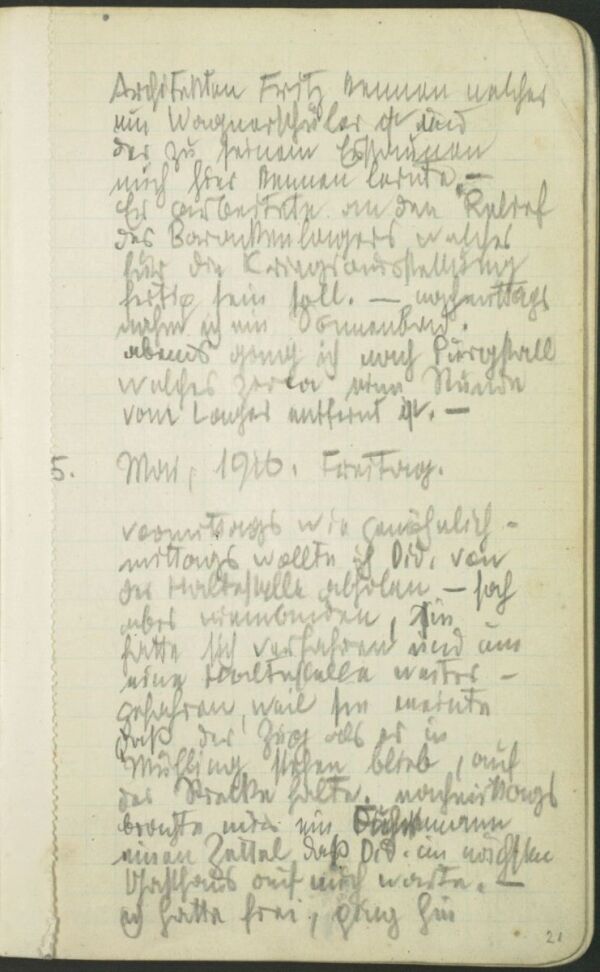 Architekten Fritz kennen welcher
ein Wagnerschüler ist und
der zu seinem Erstaunen
mich hier kennen lernte. —
Er arbeitete an den Relief
des Barackenlagers welches
für die Kriegsausstellung
fertig sein soll. — nachmittags
nahm ich ein Sonnenbad.
abends ging ich nach Purgstall
welches zirka eine Stunde
vom Lager entfernt ist. —
5. Mai, 1916. Freitag.
vormittags wie gewöhnlich –
mittags wollte ich Did. von
der Haltestelle abholen – sah
aber niemanden, sie
hatte sich verfahren und um
eine Haltestelle weiter –
gefahren, weil sie meinte
daß der Zug als er in
Mühling stehen blieb, auf
der Strecke halte. nachmittags
brachte mir ein Fuhrmann
einen Zettel, daß Did. im nächsten
Gasthaus auf mich warte. —
ich hatte frei, ging hin
21